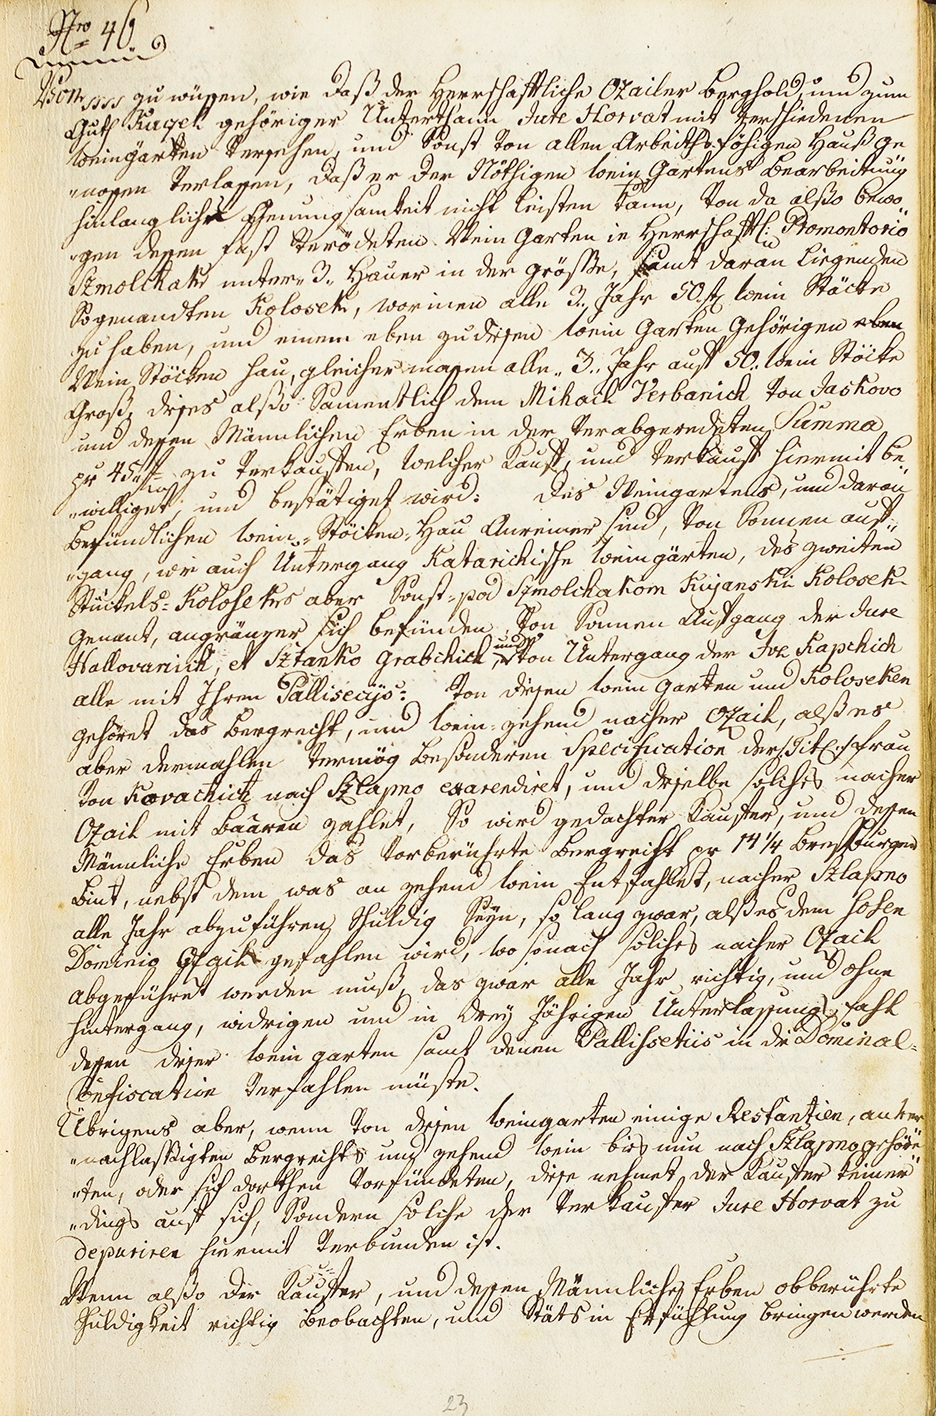 Nro 46
zu wüssen, wie daß der Herrschafftliche Ozailer Berghold, und zum
Guth Kugeh gehöriger Unterthann Jure Horvat mit verschiedenen
weingärten versehen, und Sonst von allen Arbeiths föhigen Hauß ge
"nossen verlassen, daß er der Nöthigen wein Gartens Bearbeitung
hinlangliche Genungsamkeit nicht leisten kann, von da alßo bewo
"gen dessen fast verödeten Wein Garten in Herrschafftl: Promontorio
Szmolchak unter 3. Hauer in der größe, samt daran Liegenden
Sogenandten Kolosek, worinen alle 3. Jahr 50. st. wein Stöcke
zu haben, und einem eben zu disen wein Garten Gehörigen eben
Wein Stöcken Hau, gleicher massen alle 3. Jahr auf 50. wein Stöcke
Groß, dises alßo Samentlich dem Mihach Verbanich von Jaskovo
und dessen Männlichen Erben in der verabgeredeten Summa
pr 45 f zu verkauffen, welcher Kauff, und verkauff hiermit be
"williget, und bestätiget wird: Des Weingartens, und daran
befündlichen wein Stöcken Hau Anreiner sind, von Sonnen auf
"gang, wie auch Untergang Katarichische weingärten, des zweiten
Stückels Koloseks aber Sonst pod Szmolchakom Kujanski Kolosek
Genant, angränzer sich befünden von Sonnen Aufgang der Jure
Hallovanich, et Sztanko Grabchich und von Untergang der Ive Kapchich
alle mit Ihren Pallisecijs: von disen wein Garten und Koloseken
gehöret das Bergrecht, und wein gehend nacher Ozail, alß es
aber dermahlen vermög Besonderen Specification der Titl: frau
von Kovachich nach Szlapno exarendiret, und dieselbe solches nacher
Ozail mit baaren zahlet, So wird gedachter Kauffer, und dessen
Männliche Erben das vorberührte Bergrecht pr 14 1/4 Bresburger
bint, nebst dem was an gehend wein Entfahlet, nacher Szlapno
alle Jahr abzuführen schuldig Seyn, so lang zwar, alß es dem hohen
Dominio Ozail gefahlen wird, wo sonach solches nacher Ozail
abgeführet werden muß, das zwar alle Jahr richtig, und ohne
hintergang, widrigen und in drey Jährigen Unterlassungs fahl
dessen diser wein garten samt denen Pallissetiis in die Dominal-
Confiscation verfahlen müste.
Übrigens aber, wenn von disen weingarten einige Restantien, an
"nachlässigten Bergrechts und gehend wein bis nun nach Szlapno gehöri
"ten, oder sich dorthen vorfündeten, dise nehmet der Kauffer keiner
"dings auf sich, Sondern solche der verkauffer Jure Horvat zu
depuriren hiermit verbunden ist.
Wenn alßo der Kauffer, und dessen Männliche Erben obberührte
Schuldigkeit richtig Beobachten, und Stäts in Erfühlung bringen werden
23